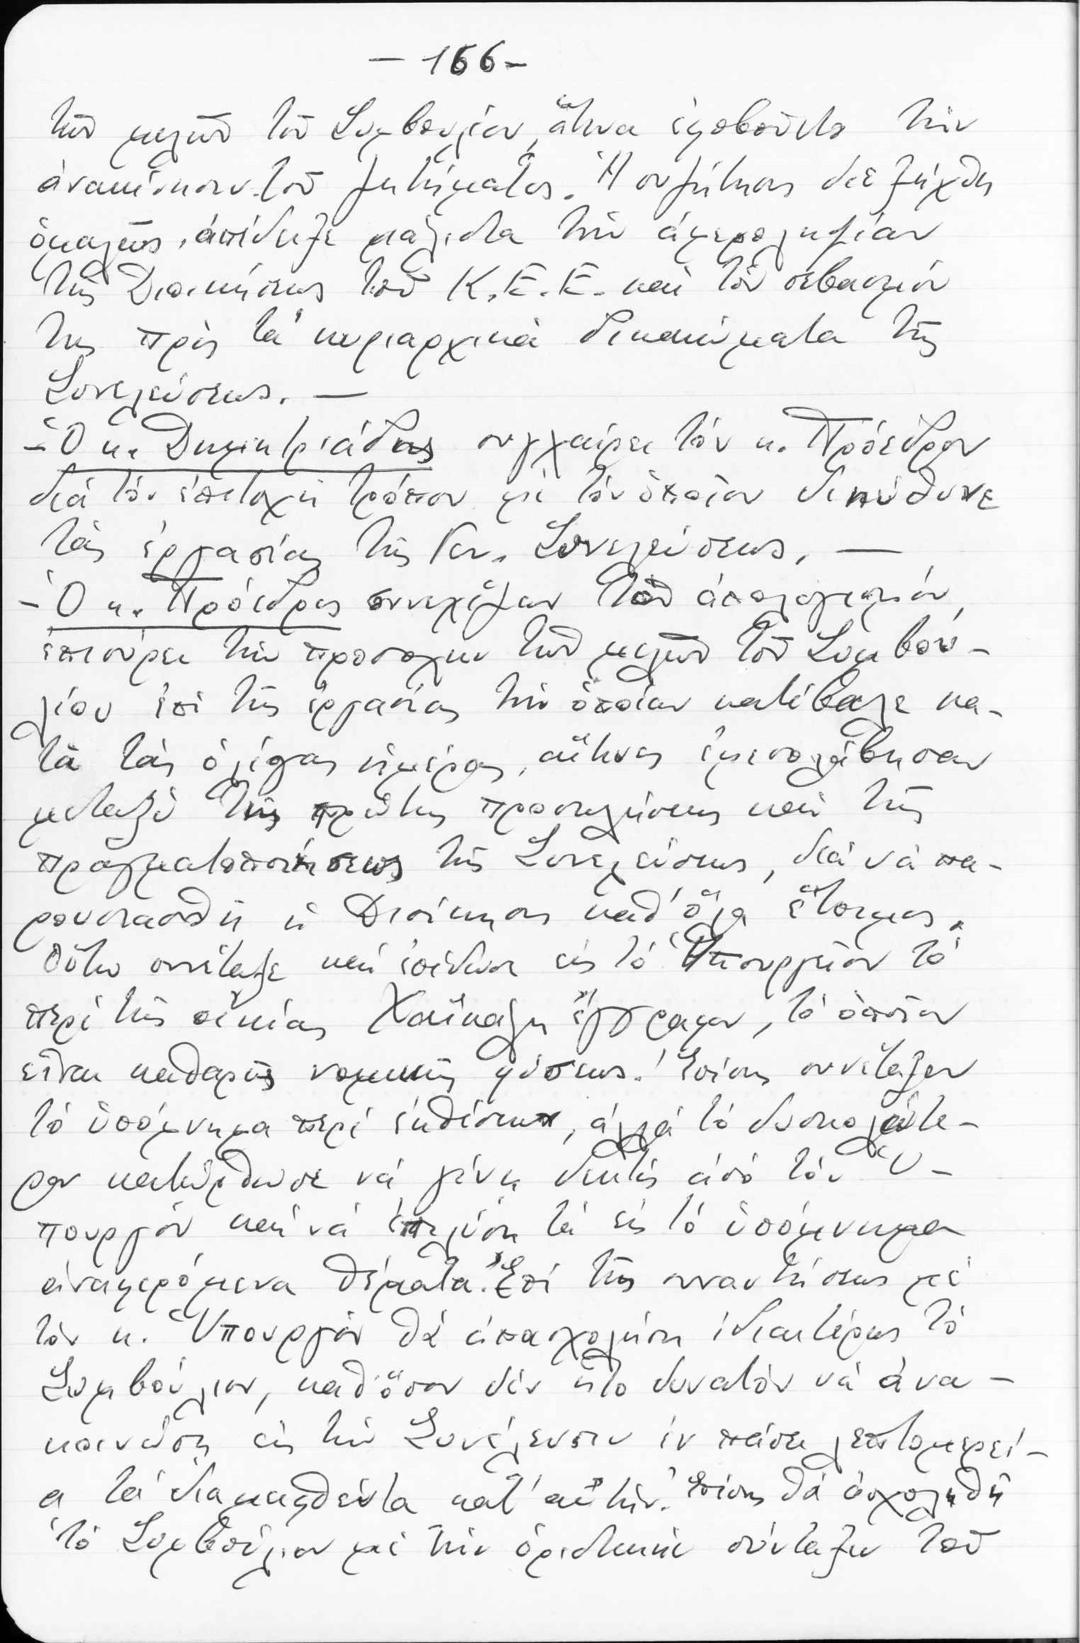 - 166 -
τῶν μελῶν τοῦ Συμβουλίου, ἅτινα ἐφοβοῦντο τὴν
ἀνακίνησιν τοῦ ζητήματος. Ἡ συζήτησις διεξήχθη
ὁμαλῶς, ἀπέδειξε μάλιστα τὴν ἀμεροληψίαν
τῆς Διοικήσεως τοῦ Κ.Ε.Ε. καὶ τὸν σεβασμόν
της πρὸς τὰ κυριαρχικὰ δικαιώματα τῆς
Συνελεύσεως. —
- Ὁ κ. Δημητριάδης συγχαίρει τὸν κ. Πρόεδρον
διὰ τὸν ἐπιτυχῆ τρόπον μὲ τὸν ὁποῖον διηύθυνε
τὰς ἐργασίας τῆς Γεν. Συνελεύσεως. —
- Ὁ κ. Πρόεδρος συνεχίζων τὸν ἀπολογισμόν,
ἐπισύρει τὴν προσοχὴν τῶν μελῶν τοῦ Συμβου-
λίου ἐπὶ τῆς ἐργασίας τὴν ὁποίαν κατέβαλε κα-
τὰ τὰς ὀλίγας ἡμέρας, αἵτινες ἐμεσολάβησαν
μεταξὺ τῆς πρώτης προσκλήσεως καὶ τῆς
πραγματοποιήσεως τῆς Συνελεύσεως, διὰ νὰ πα-
ρουσιασθῇ ἡ Διοίκησις καθ' ὅλα ἕτοιμος.
Οὕτω συνέταξε καὶ ἐπέδωσε εἰς τὸ Ὑπουργεῖον τὸ
περὶ τῆς οἰκίας Χαϊκάλη ἔγγραφον, τὸ ὁποῖον
εἶναι καθαρῶς νομικῆς φύσεως. Ἐπίσης συνέταξεν
τὸ ὑπόμνημα περὶ ἐκθέσεων, ἀλλὰ τὸ δυσκολώτε-
ρον κατώρθωσε νὰ γίνῃ δεκτὸς ἀπὸ τὸν Ὑ-
πουργὸν καὶ νὰ ἐπιλύσῃ τὰ εἰς τὸ ὑπόμνημα
ἀναφερόμενα θέματα. Ἐπὶ τῆς συναντήσεως μὲ
τὸν κ. Ὑπουργὸν θὰ ἀπασχολήσῃ ἰδιαιτέρως τὸ
Συμβούλιον, καθ' ὅσον δὲν ἦτο δυνατὸν νὰ ἀνα-
κοινώσῃ εἰς τὴν Συνέλευσιν ἐν πάσῃ λεπτομερεί-
ᾳ τὰ διαμειφθέντα κατ' αὐτήν. Ἐπίσης θὰ ἀσχοληθῇ
τὸ Συμβούλιον μὲ τὴν ὁριστικὴν σύνταξιν τοῦ